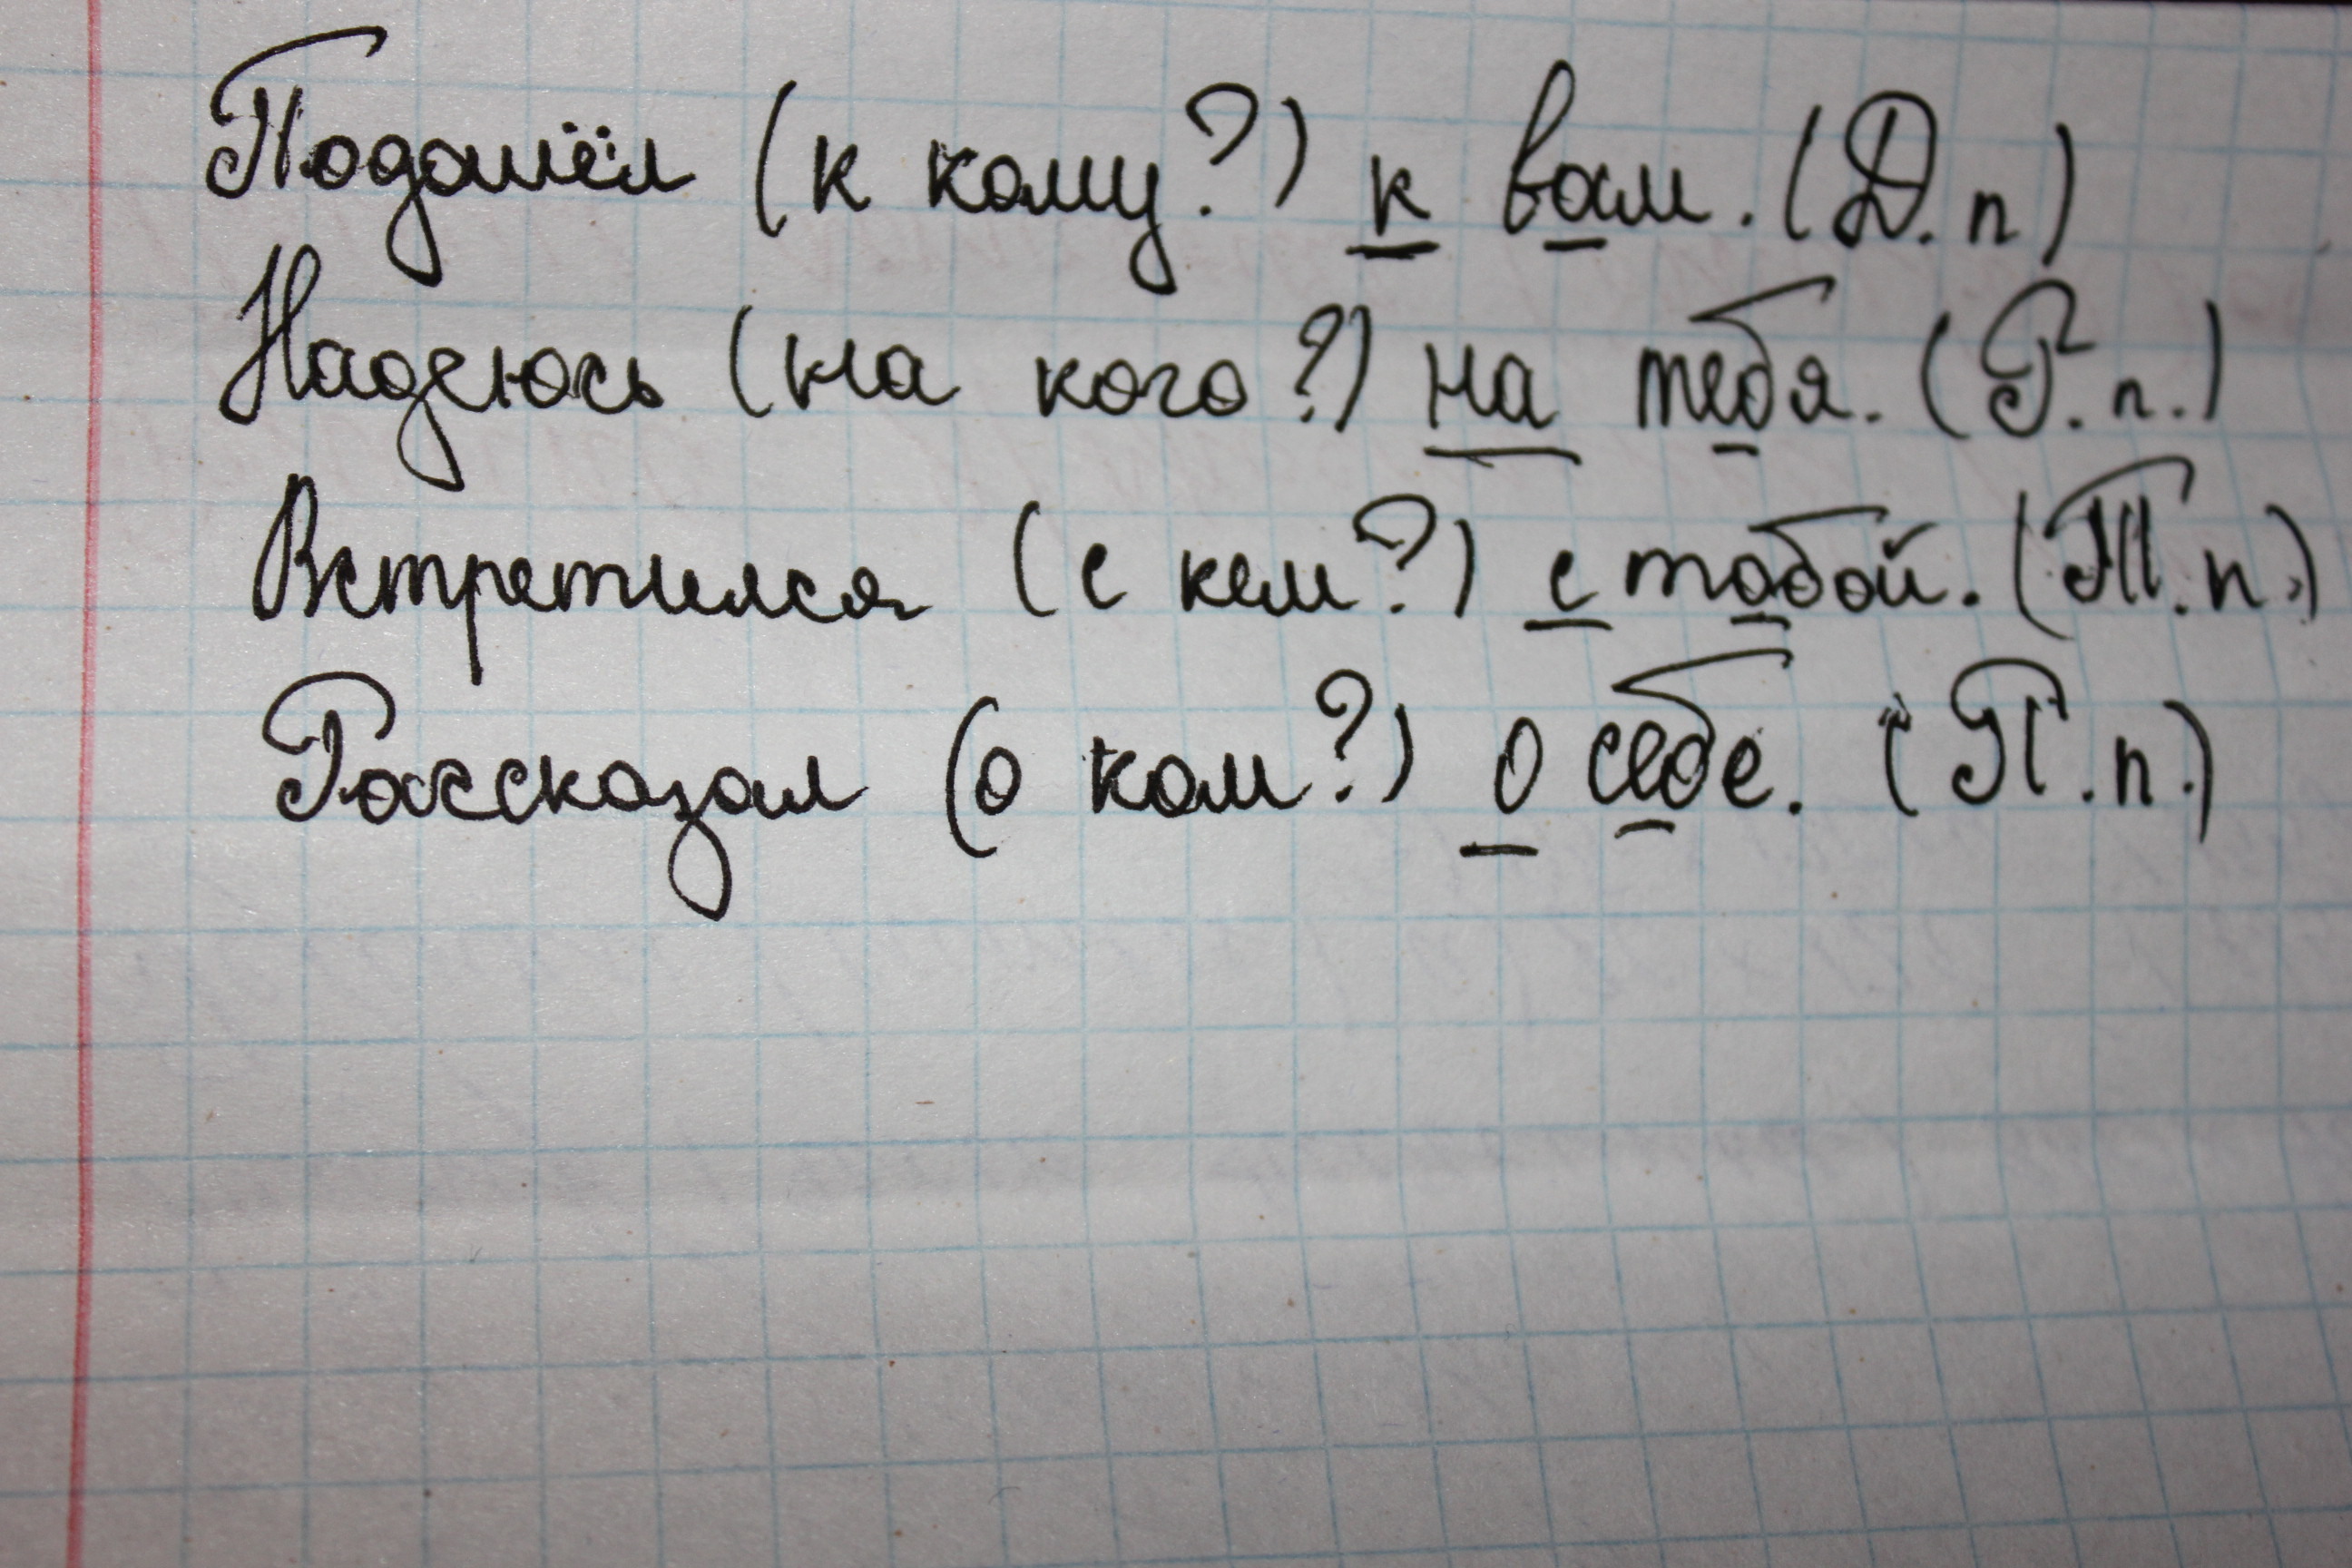 Подошёл (к кому?) к вам. (Д. п)
Надеюсь (на кого?) на тебя. (Р. п.)
Встретился (с кем?) с тобой. (Т. п.)
Рассказал (о ком?) о себе. (П. п.)